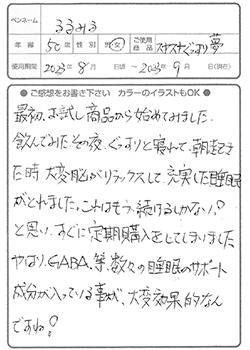 ペンネーム るるみる
年齢 50代 性別 男・女 ご使用商品 スヤスヤぐっすり夢
使用期間 2023年8月 日頃 ～ 2023年9月 日(現在)
● ご感想をお書き下さい カラーのイラストもOK ●
最初、お試し商品から始めてみました。
飲んでみたその夜、ぐっすりと寝れて、朝起き
た時、大変脳がリラックスして、充実した睡眠
がとれました。これはもう続けるしかない!
と思い、すぐに定期購入をしてしまいました
やはり、GABA、等、数々の睡眠のサポート
成分が入っている事が、大変効果的なん
ですね!